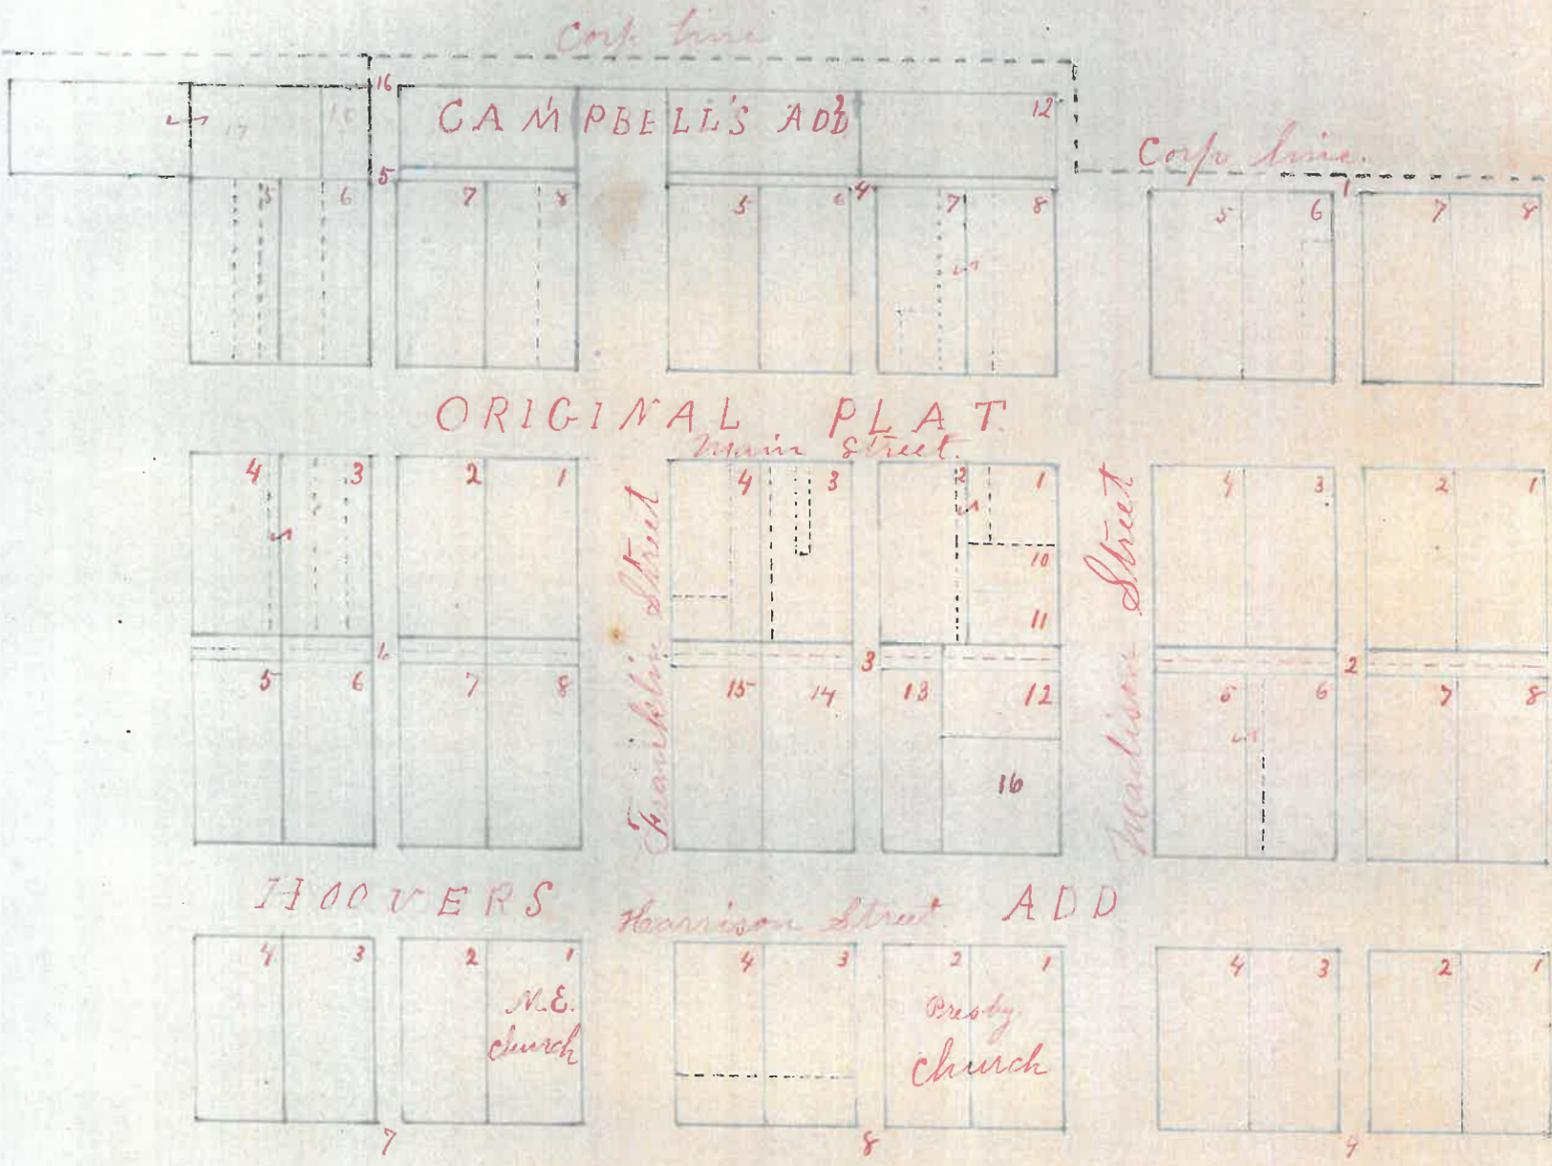 Corp line
16
CAMPBELL'S ADD
12
17
Corp line.
5
4
1
5 6 7 8
5 6 7 8
5 6 7 8
ORIGINAL PLAT
Main Street.
4 3 2 1
4 3 2 1
4 3 2 1
10
11
Franklin Street
Madison Street
3
2
5 6 7 8
15 14 13 12
5 6 7 8
16
HOOVERS ADD
Harrison Street
4 3 2 1
4 3 2 1
4 3 2 1
M.E.
church
Presby.
church
7
8
9